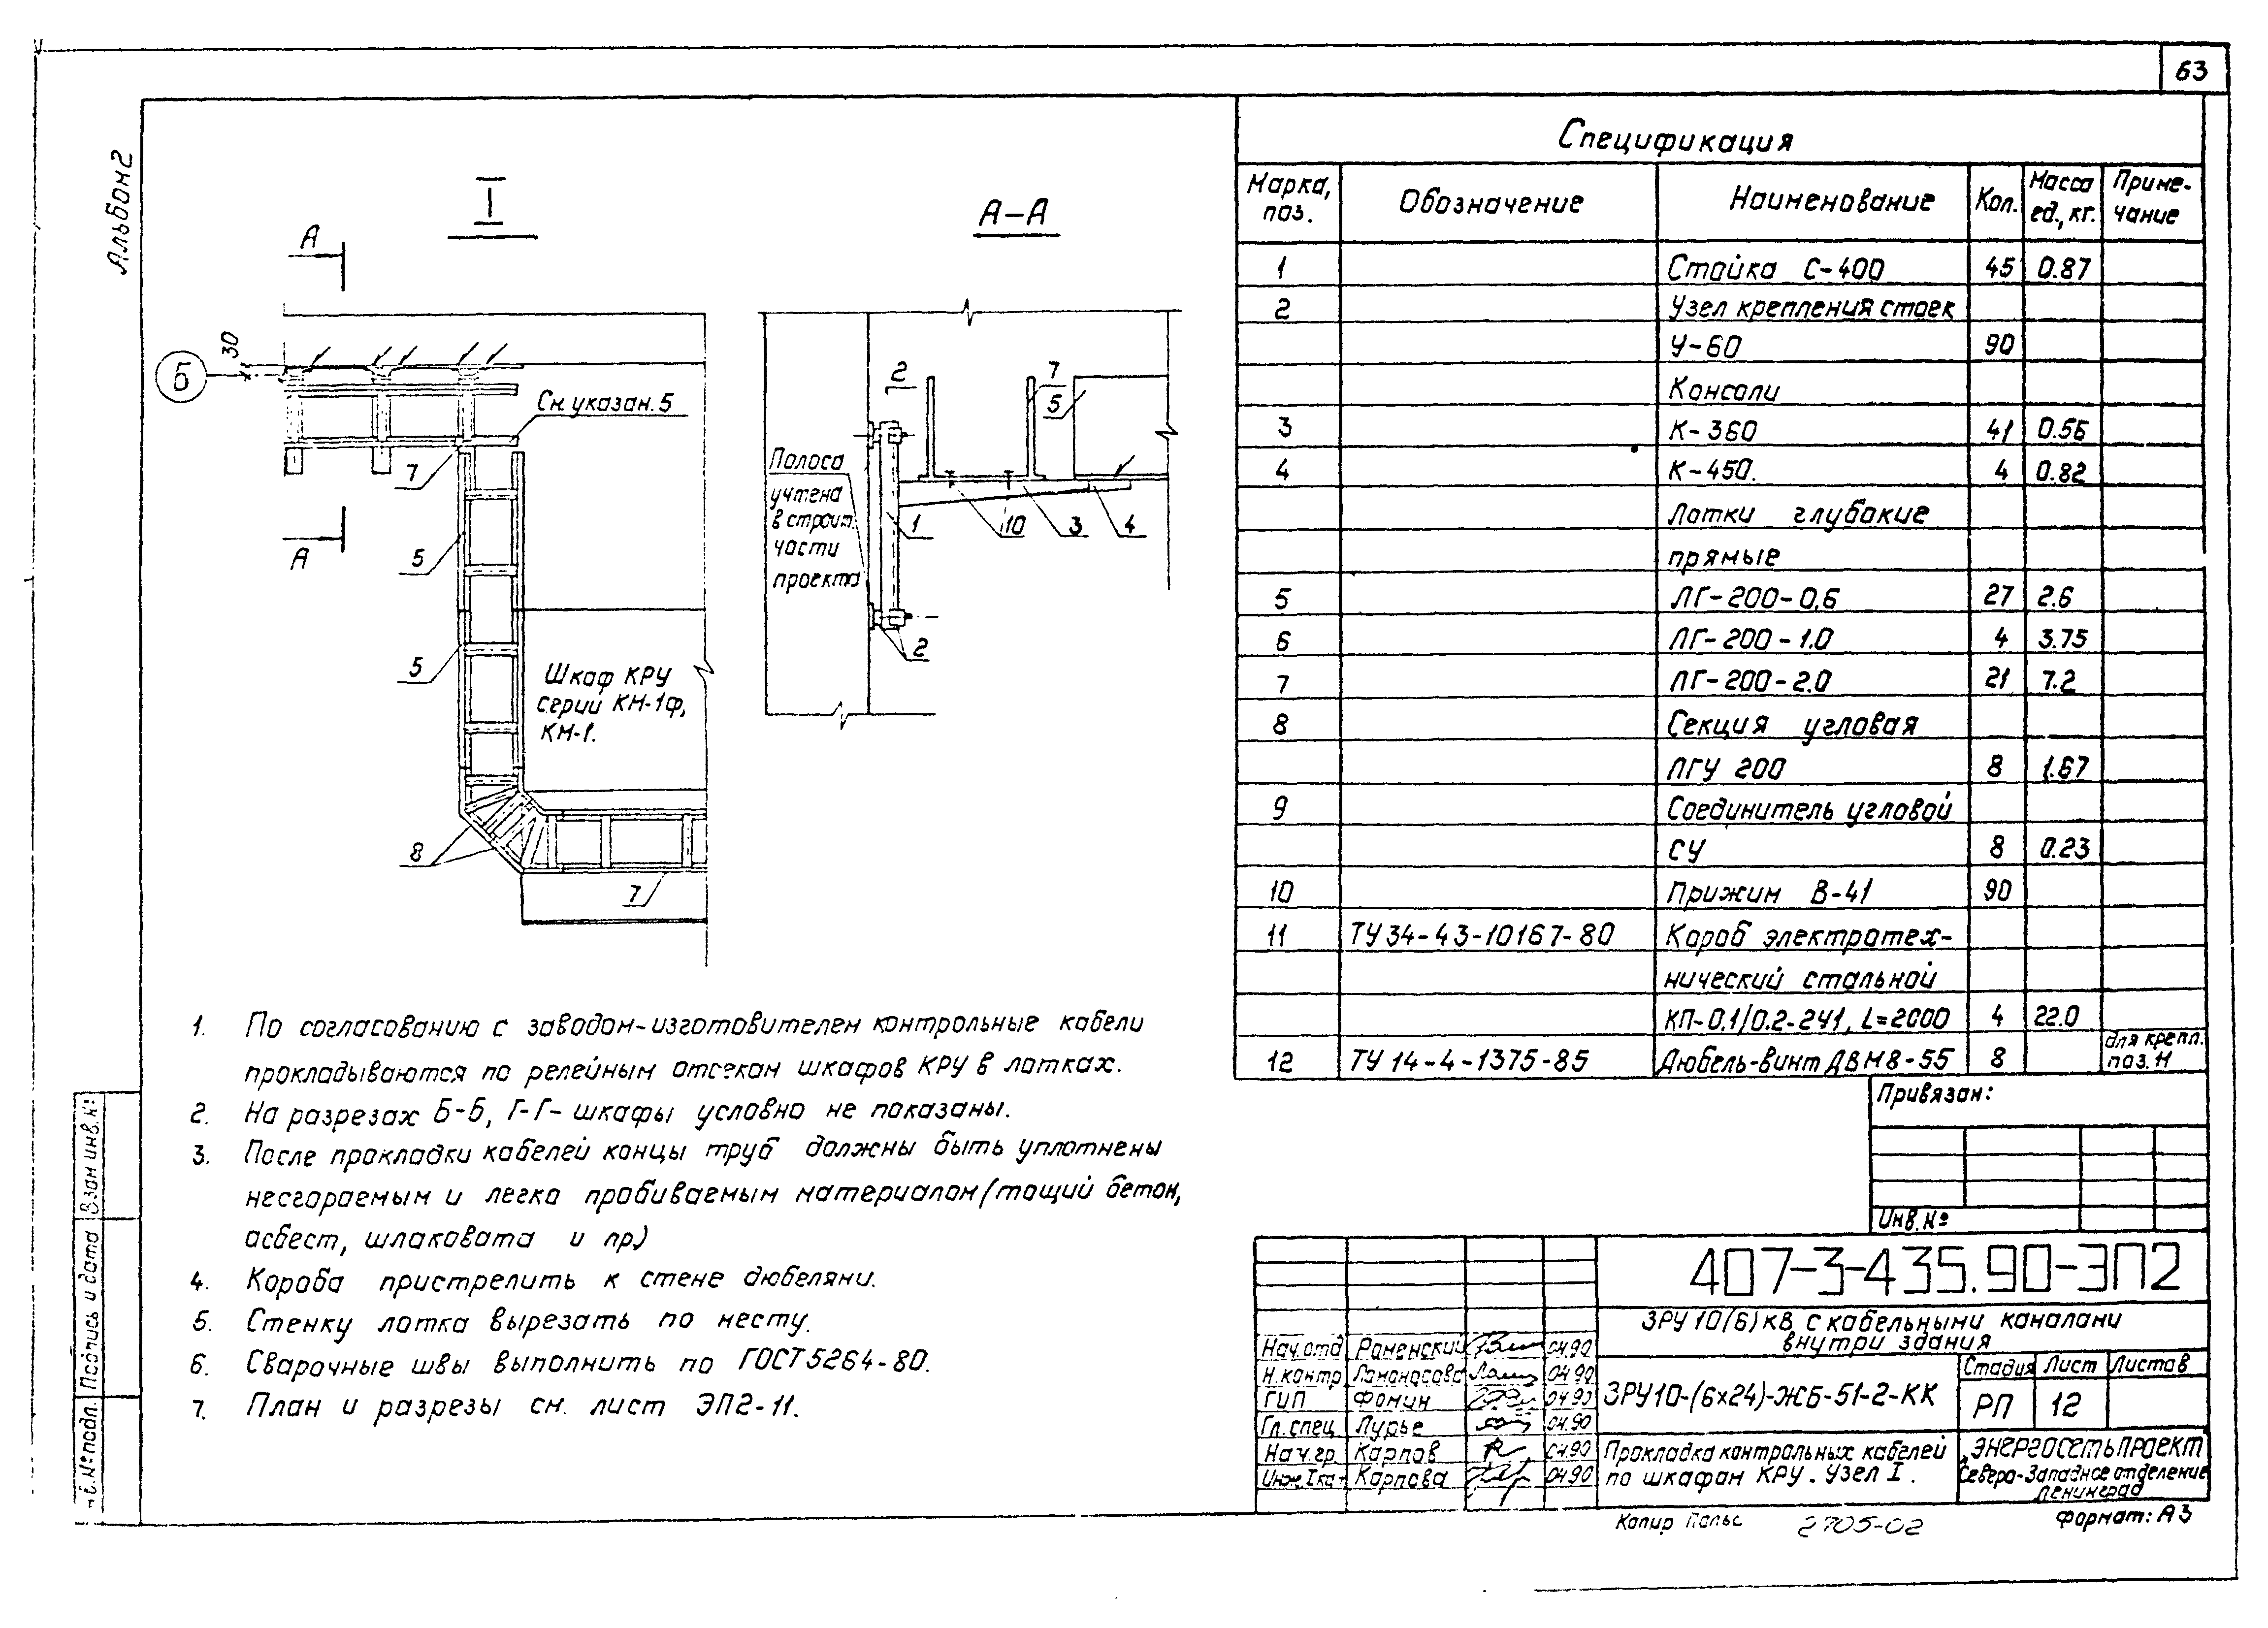 63
Альбом 2
I
А-А
А
А
30
Б
См. указан. 5
7
5
5
8
7
Шкаф КРУ
серии КМ-1Ф,
КМ-1.
Полоса
учтена
в строит.
части
проекта
2
7
5
1
10
3
4
2
1. По согласованию с заводом-изготовителем контрольные кабели
прокладываются по релейным отсекам шкафов КРУ в лотках.
2. На разрезах Б-Б, Г-Г - шкафы условно не показаны.
3. После прокладки кабелей концы труб должны быть уплотнены
несгораемым и легко пробиваемым материалом (тощий бетон,
асбест, шлаковата и пр.)
4. Короба пристрелить к стене дюбелями.
5. Стенку лотка вырезать по месту.
6. Сварочные швы выполнить по ГОСТ 5264-80.
7. План и разрезы см. лист ЭП2-11.
Спецификация
Марка, поз. Обозначение Наименование Кол. Масса ед., кг. Примечание
1 Стойка С-400 45 0.87
2 Узел крепления стоек
У-60 90
Консоли
3 К-360 41 0.56
4 К-450. 4 0.82
Лотки глубокие
прямые
5 ЛГ-200-0.6 27 2.6
6 ЛГ-200-1.0 4 3.75
7 ЛГ-200-2.0 21 7.2
8 Секция угловая
ЛГУ 200 8 1.67
9 Соединитель угловой
СУ 8 0.23
10 Прижим В-41 90
11 ТУ 34-43-10167-80 Короб электротех-
нический стальной
КП-0.1/0.2-2У1, L=2000 4 22.0
12 ТУ 14-4-1375-85 Дюбель-винт ДВМ8-55 8 для крепл. поз. 11
Привязан:
Инв. №
407-3-435.90-ЭП2
ЗРУ 10(6) кВ с кабельными каналами
внутри здания
Нач. отд Роменский 04.90
Н. контр Ломоносова 04.90
ГИП Фомин 04.90
Гл. спец Лурье 04.90
Нач. гр. Карпов 04.90
Инж. I кат Карпова 04.90
ЗРУ10-(6х24)-ЖБ-51-2-КК
Стадия Лист Листов
РП 12
Прокладка контрольных кабелей
по шкафам КРУ. Узел I.
Энергосетьпроект
Северо-Западное отделение
Ленинград
Копир 2705-02 Формат: А3
Взам инв. №
Подпись и дата
Инв. № подл.